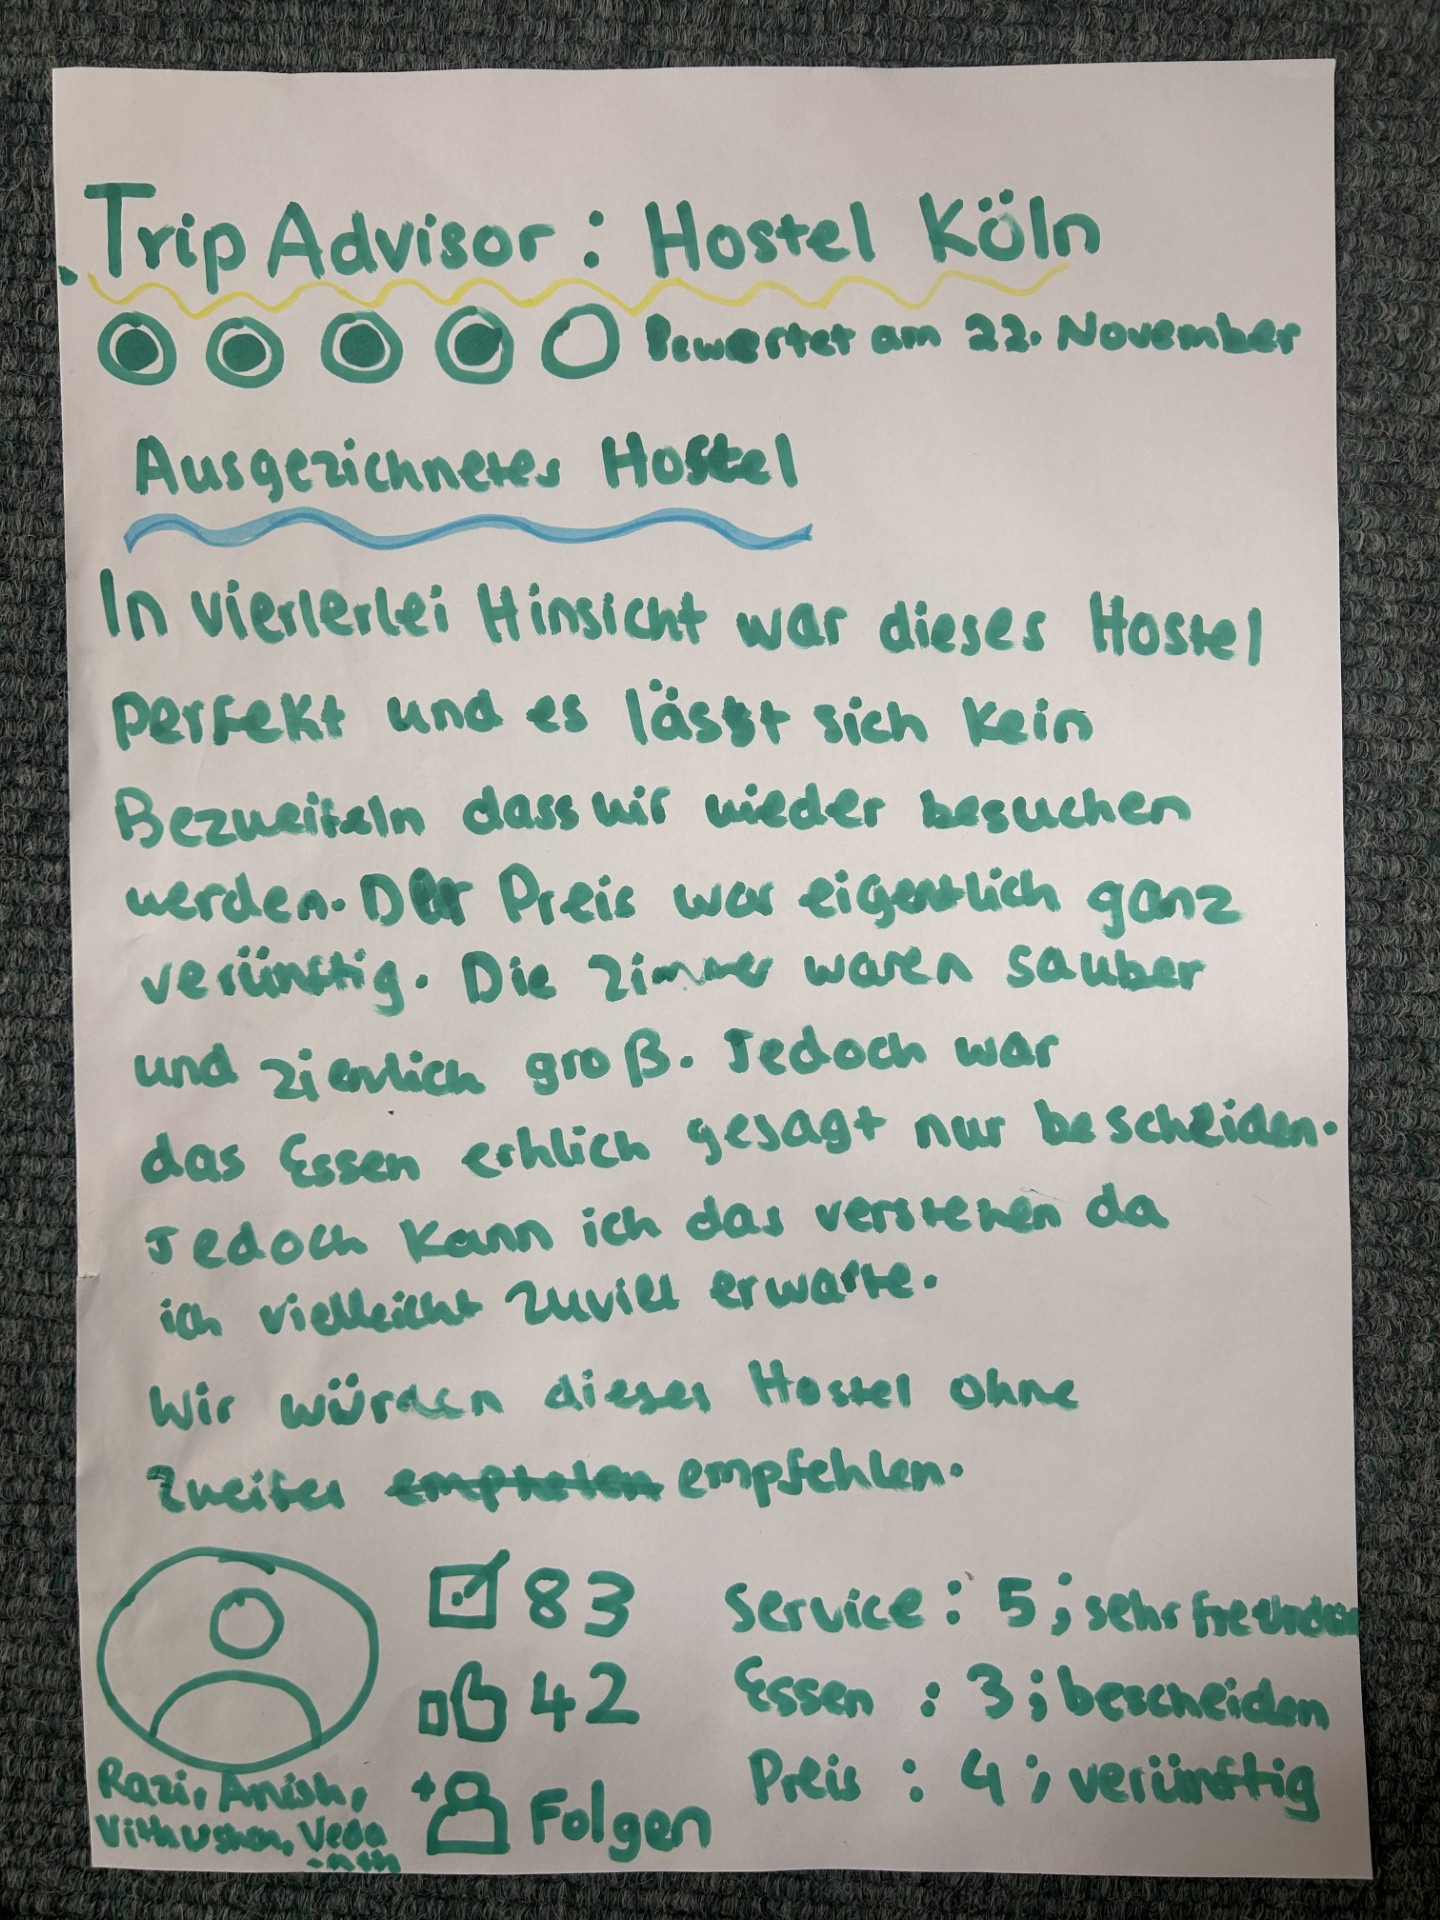 Trip Advisor : Hostel Köln
Bewertet am 22. November
Ausgezichnetes Hostel
In vierlerlei Hinsicht war dieses Hostel
perfekt und es lässt sich kein
Bezweifeln dass wir wieder besuchen
werden. Der Preis war eigentlich ganz
verünftig. Die Zimmer waren sauber
und ziemlich groß. Jedoch war
das Essen erhlich gesagt nur bescheiden.
Jedoch kann ich das verstehen da
ich vielleicht zuviel erwarte.
Wir würden dieses Hostel ohne
Zweifel empfehlen.
83
42
Folgen
Service : 5 ; sehr
Essen : 3 ; bescheiden
Preis : 4 ; verünftig
Razi, Anish,
Vithushan, Veda
-nth